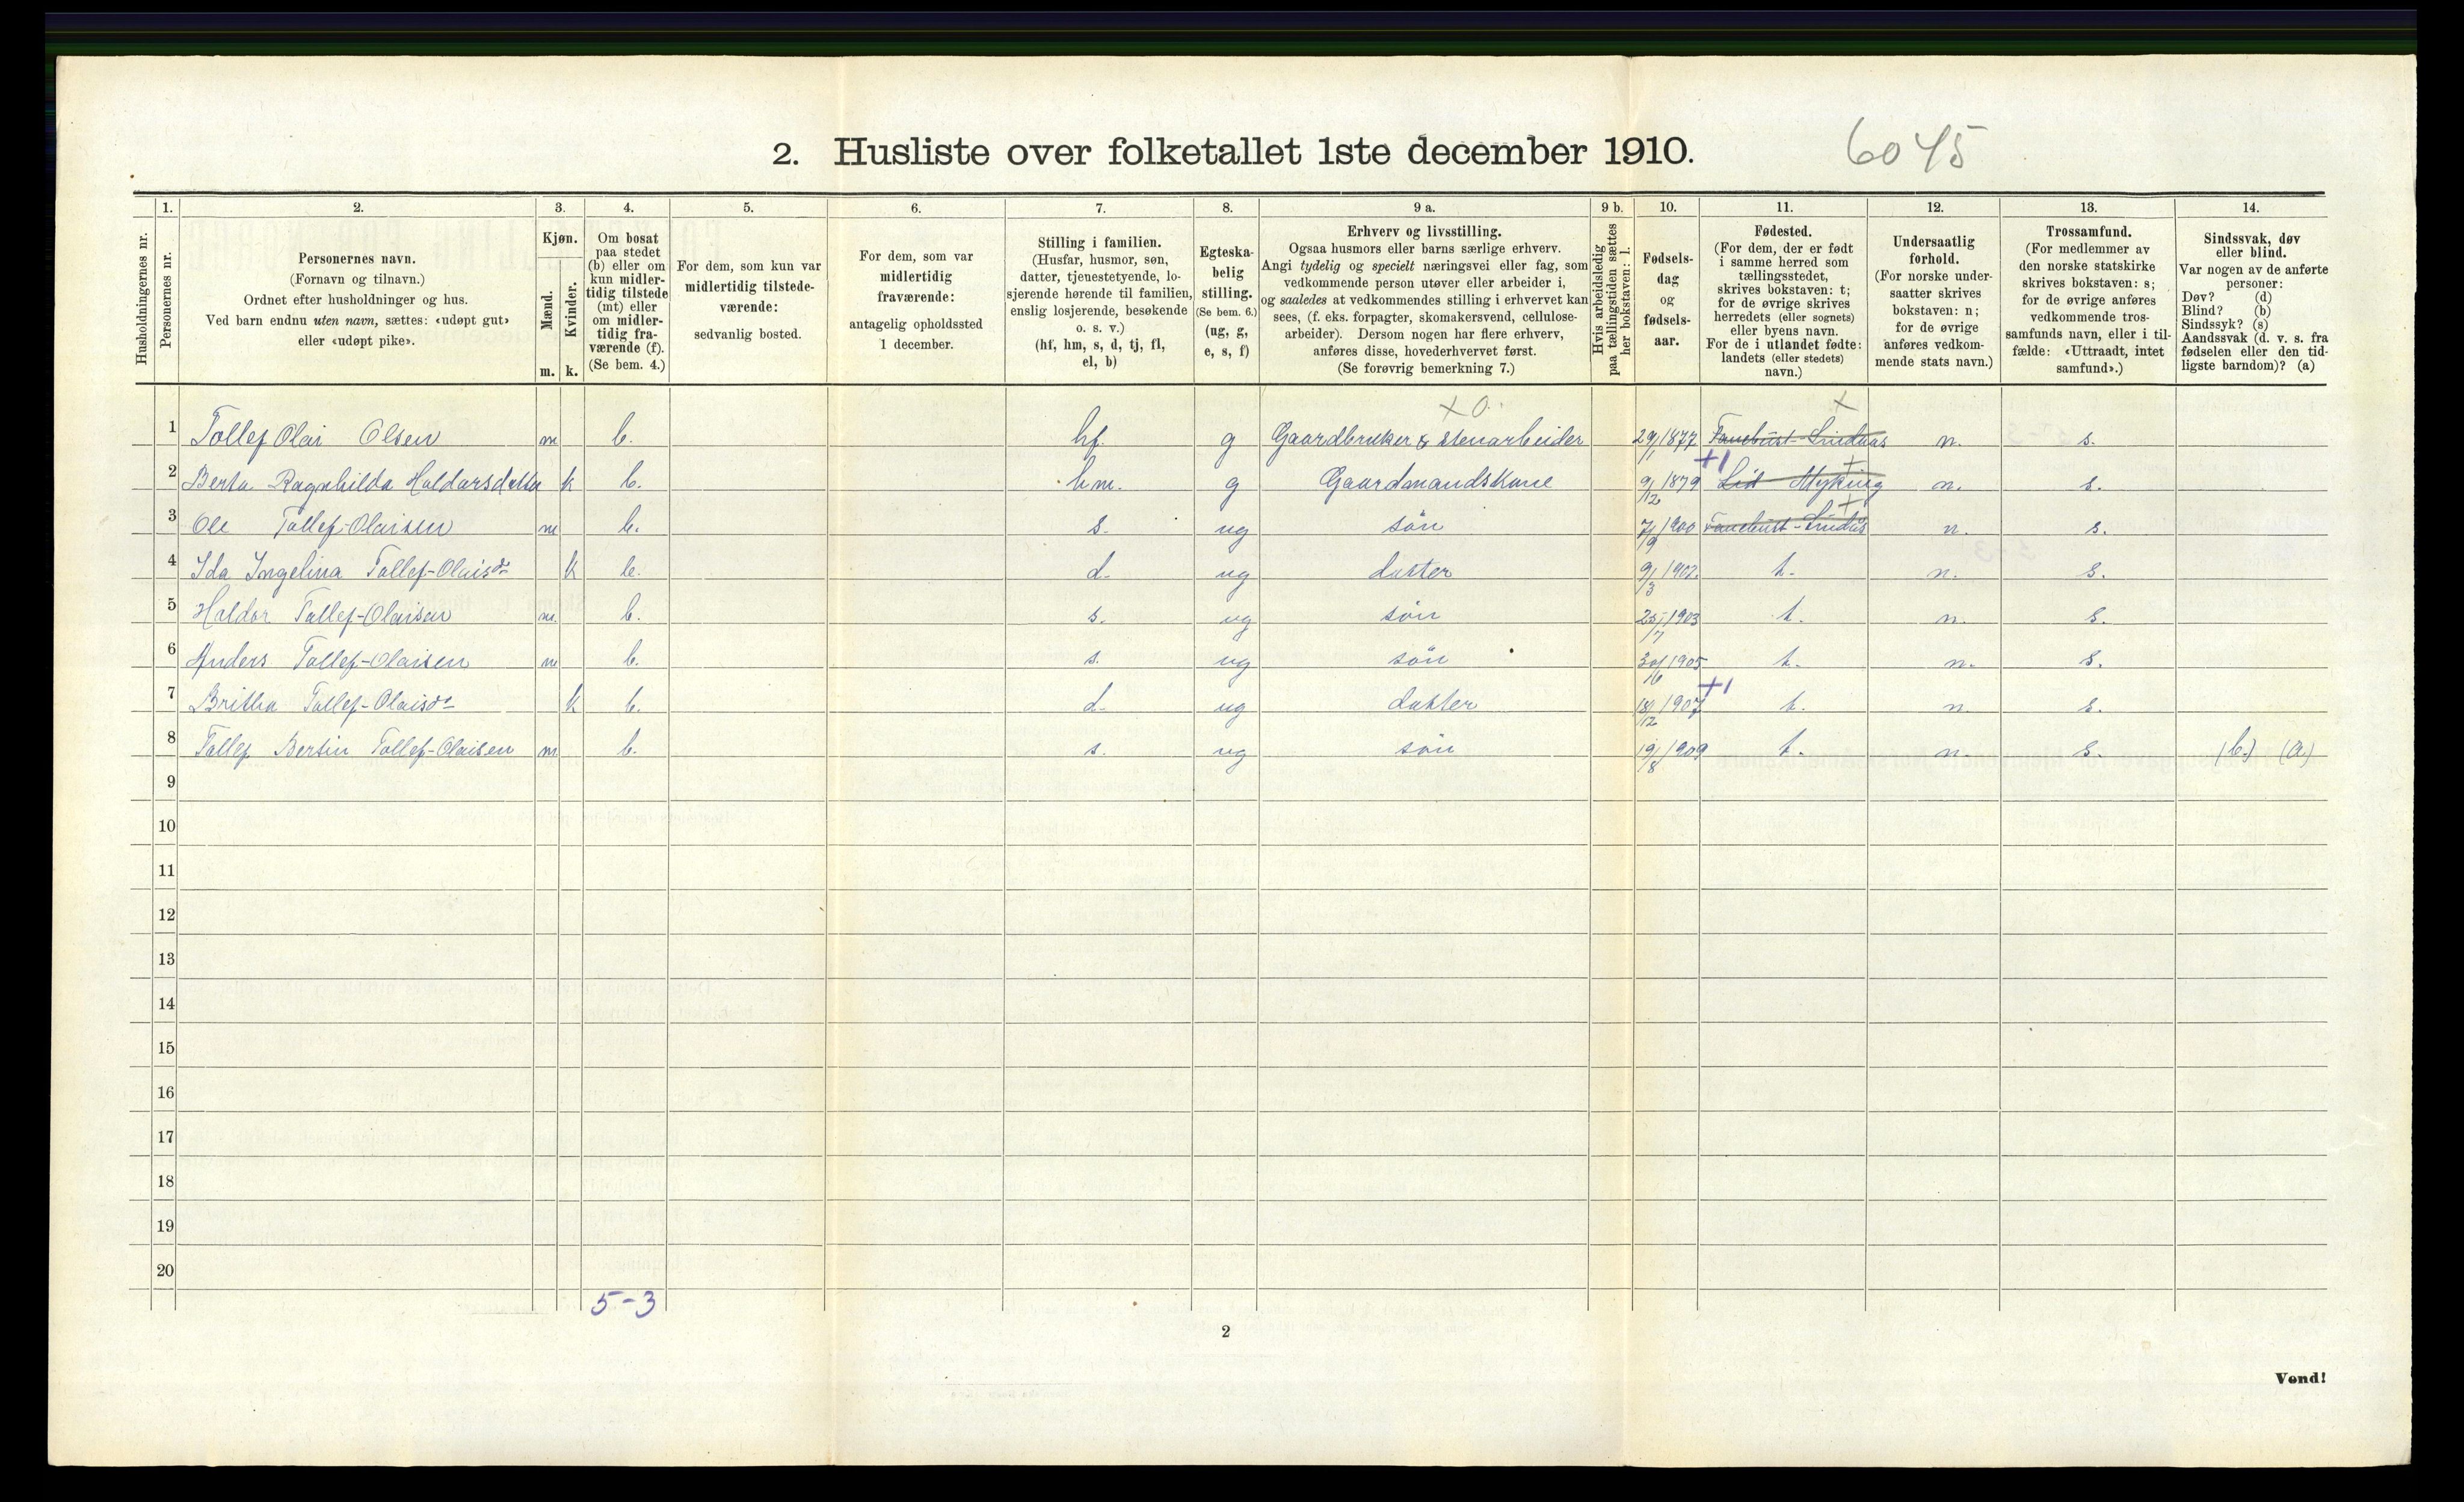 2. Husliste over folketallet 1ste december 1910.
6045
Husholdningernes nr.
1. Personernes nr.
2. Personernes navn. (Fornavn og tilnavn.) Ordnet efter husholdninger og hus. Ved barn endnu uten navn, sættes: «udøpt gut» eller «udøpt pike».
3. Kjøn. Mænd. m. Kvinder. k.
4. Om bosat paa stedet (b) eller om kun midlertidig tilstede (mt) eller om midlertidig fraværende (f). (Se bem. 4.)
5. For dem, som kun var midlertidig tilstedeværende: sedvanlig bosted.
6. For dem, som var midlertidig fraværende: antagelig opholdssted 1 december.
7. Stilling i familien. (Husfar, husmor, søn, datter, tjenestetyende, losjerende hørende til familien, enslig losjerende, besøkende o. s. v.) (hf, hm, s, d, tj, fl, el, b)
8. Egteskabelig stilling. (Se bem. 6.) (ug, g, e, s, f)
9 a. Erhverv og livsstilling. Ogsaa husmors eller barns særlige erhverv. Angi tydelig og specielt næringsvei eller fag, som vedkommende person utøver eller arbeider i, og saaledes at vedkommendes stilling i erhvervet kan sees, (f. eks. forpagter, skomakersvend, cellulosearbeider). Dersom nogen har flere erhverv, anføres disse, hovederhvervet først. (Se forøvrig bemerkning 7.)
9 b. Hvis arbeidsledig paa tællingstiden sættes her bokstaven: l.
10. Fødselsdag og fødselsaar.
11. Fødested. (For dem, der er født i samme herred som tællingsstedet, skrives bokstaven: t; for de øvrige skrives herredets (eller sognets) eller byens navn. For de i utlandet fødte: landets (eller stedets) navn.)
12. Undersaatlig forhold. (For norske undersaatter skrives bokstaven: n; for de øvrige anføres vedkommende stats navn.)
13. Trossamfund. (For medlemmer av den norske statskirke skrives bokstaven: s; for de øvrige anføres vedkommende trossamfunds navn, eller i tilfælde: «Uttraadt, intet samfund».)
14. Sindssvak, døv eller blind. Var nogen av de anførte personer: Døv? (d) Blind? (b) Sindssyk? (s) Aandssvak (d. v. s. fra fødselen eller den tidligste barndom)? (a)
1 Tollef Olai Olsen m b. hf. g Gaardbruker & Stenarbeider 29/1 1877 Fanebust-Lindaas n. s.
2 Berta Ragnhilda Haldorsdatter k b. hm. g Gaardmandskone 9/12 1879 Lid Myking n. s.
3 Ole Tollef-Olaisen m b. s. ug søn 7/9 1900 Fanebust-Lindås n. s.
4 Ida Ingelina Tollef-Olaisdr k b. d. ug datter 9/3 1902. t. n. s.
5 Haldor Tollef-Olaisen m. b. s. ug søn 25/7 1903 t. n. s.
6 Anders Tollef-Olaisen m b. s. ug søn 30/6 1905 t. n. s.
7 Britha Tollef-Olaisdr k b. d. ug datter 18/12 1907 t. n. s.
8 Tollef Bertin Tollef-Olaisen m b. s. ug søn 19/8 1909 t. n. s. (b.) (a)
9
10
11
12
13
14
15
16
17
18
19
20
5-3
2
Vend!